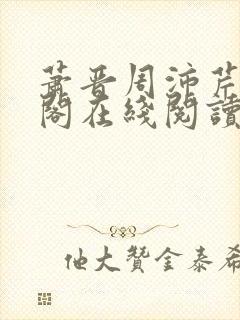 萧晋周沛芹
阁在线阅读
他大赞金泰希